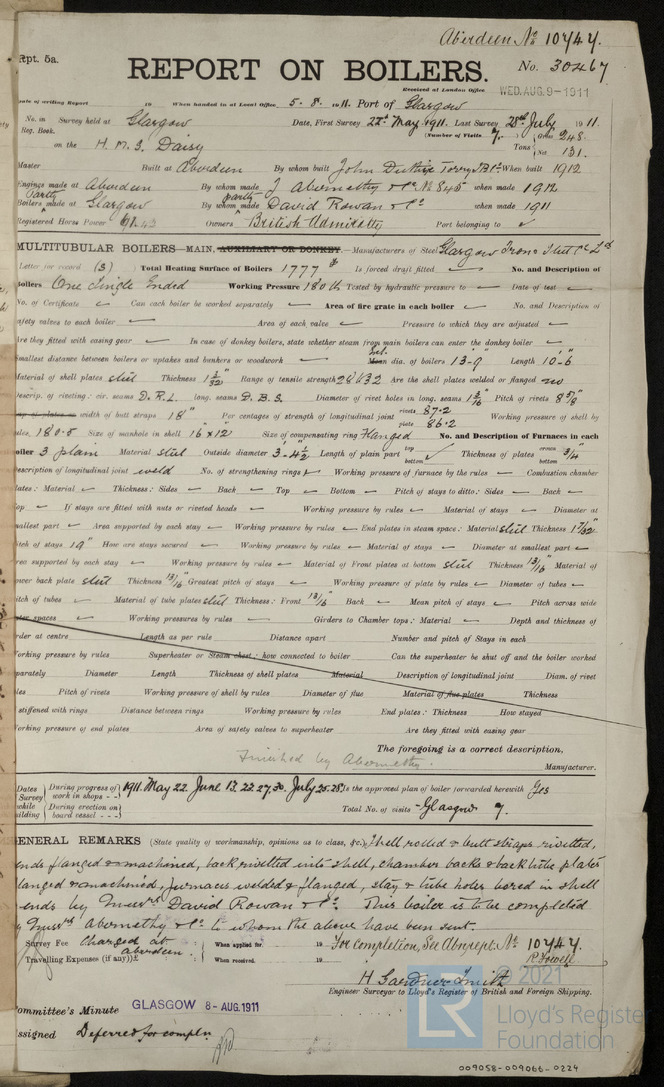 Aberdeen No 10747.
Rpt. 5a.
REPORT ON BOILERS.
No. 30467
Received at London Office WED. AUG. 9 - 1911
Date of writing Report 19 When handed in at Local Office 5 - 8 - 1911. Port of Glasgow
No. in Survey held at Glasgow Date, First Survey 22nd May 1911. Last Survey 28th July 1911.
Reg. Book. (Number of Visits 7.)
on the H. M. S. Daisy Tons Gross 248. Net 131.
Master Built at Aberdeen By whom built John Duthie Torry When built 1912
Engines made at Aberdeen By whom made J Abernethy & Co No 845 when made 1912
Boilers partly made at Glasgow By whom partly made David Rowan & Co when made 1911
Registered Horse Power Owners British Admiralty Port belonging to ✓
MULTITUBULAR BOILERS - MAIN, AUXILIARY OR DONKEY. - Manufacturers of Steel Glasgow Iron & Steel Co Ld
Letter for record (S) Total Heating Surface of Boilers 1777 Is forced draft fitted No. and Description of
Boilers One Single Ended Working Pressure 180 lb Tested by hydraulic pressure to Date of test
No. of Certificate Can each boiler be worked separately Area of fire grate in each boiler No. and Description of
safety valves to each boiler Area of each valve Pressure to which they are adjusted
Are they fitted with easing gear In case of donkey boilers, state whether steam from main boilers can enter the donkey boiler
Smallest distance between boilers or uptakes and bunkers or woodwork Mean dia. of boilers 13-9" Length 10-6"
Material of shell plates steel Thickness 1 3/32" Range of tensile strength 28 & 32 Are the shell plates welded or flanged no
Descrip. of riveting: cir. seams D. R. L. long. seams D. B. S. Diameter of rivet holes in long. seams 1 3/16" Pitch of rivets 8 5/8"
Lap of plates or width of butt straps 18" Per centages of strength of longitudinal joint rivets 87.2 plate 86.2 Working pressure of shell by
rules 180.5 Size of manhole in shell 16" x 12" Size of compensating ring flanged No. and Description of Furnaces in each
boiler 3 plain Material steel Outside diameter 3'-4 1/2" Length of plain part top bottom Thickness of plates crown bottom 3/4"
Description of longitudinal joint weld No. of strengthening rings Working pressure of furnace by the rules Combustion chamber
plates: Material Thickness: Sides Back Top Bottom Pitch of stays to ditto: Sides Back
Top If stays are fitted with nuts or riveted heads Working pressure by rules Material of stays Diameter at
smallest part Area supported by each stay Working pressure by rules End plates in steam space: Material steel Thickness 1 7/32"
Pitch of stays 19" How are stays secured Working pressure by rules Material of stays Diameter at smallest part
Area supported by each stay Working pressure by rules Material of Front plates at bottom steel Thickness 13/16" Material of
Lower back plate steel Thickness 13/16" Greatest pitch of stays Working pressure of plate by rules Diameter of tubes
Pitch of tubes Material of tube plates steel Thickness: Front 13/16" Back Mean pitch of stays Pitch across wide
water spaces Working pressures by rules Girders to Chamber tops: Material Depth and thickness of
girder at centre Length as per rule Distance apart Number and pitch of Stays in each
Working pressure by rules Superheater or Steam chest; how connected to boiler Can the superheater be shut off and the boiler worked
separately Diameter Length Thickness of shell plates Material Description of longitudinal joint Diam. of rivet
holes Pitch of rivets Working pressure of shell by rules Diameter of flue Material of flue plates Thickness
If stiffened with rings Distance between rings Working pressure by rules End plates: Thickness How stayed
Working pressure of end plates Area of safety valves to superheater Are they fitted with easing gear
The foregoing is a correct description,
Finished by Abernethy. Manufacturer.
Dates of Survey while building During progress of work in shops - - 1911. May 22 June 13. 22. 27. 30. July 25. 28 Is the approved plan of boiler forwarded herewith Yes
During erection on board vessel - - - Total No. of visits - Glasgow 7.
GENERAL REMARKS (State quality of workmanship, opinions as to class, &c.) Shell rolled & butt straps rivetted,
ends flanged & machined, back rivetted into shell, chamber backs & back tube plates
flanged & machined, furnaces welded & flanged, stay & tube holes bored in shell
ends by Messrs David Rowan & Co. This boiler is to be completed
by Messrs Abernethy & Co to whom the above have been sent.
Survey Fee Charged at Aberdeen. When applied for. 19 For completion, See Abn rept. No 10747.
Travelling Expenses (if any) £ When received. 19
H Gardner-Smith
Engineer Surveyor to Lloyd's Register of British and Foreign Shipping.
Committee's Minute GLASGOW 8 - AUG. 1911
Assigned Deferred for compln
© 2021
LR Lloyd's Register Foundation
009058-009066-0224